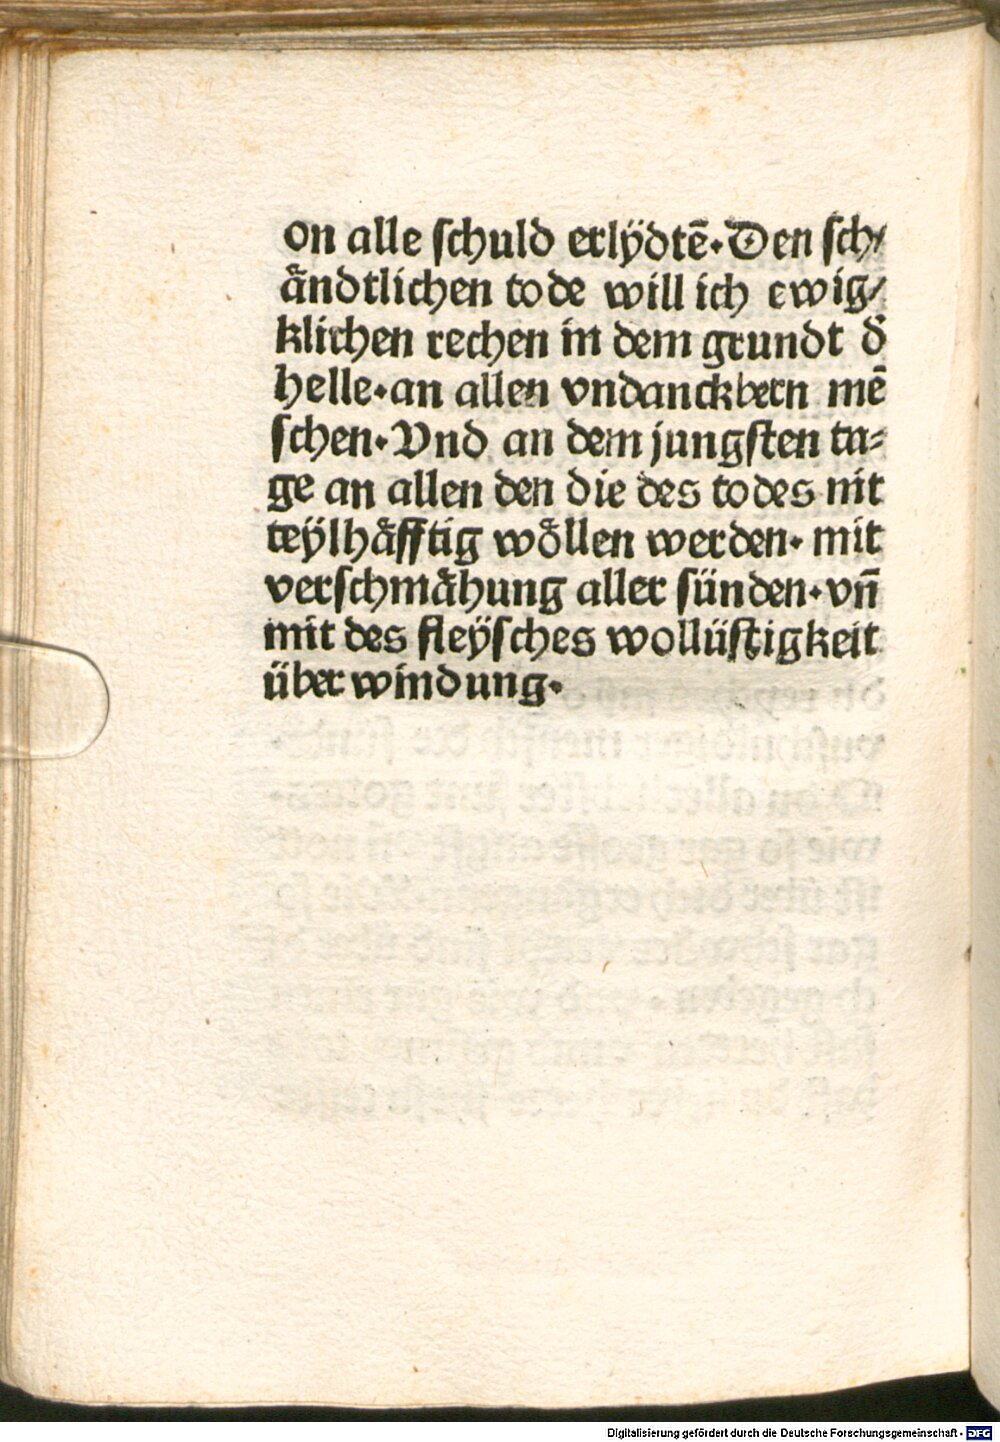 on alle ſchuld erlÿdtē. Den ſch⸗
åndtlichen tode will ich ewig⸗
klichen rechen in dem grundt đ
helle. an allen vndanckbern mē
ſchen. Vnd an dem jungſten ta⸗
ge an allen den die des todes nit
teÿlhåfftig wöllen werden. mit
verſchmåhung aller ſünden. vn̄
mit des fleÿſches wollüſtigkeit
über windung.
Digitalisierung gefördert durch die Deutsche Forschungsgemeinschaft - DFG